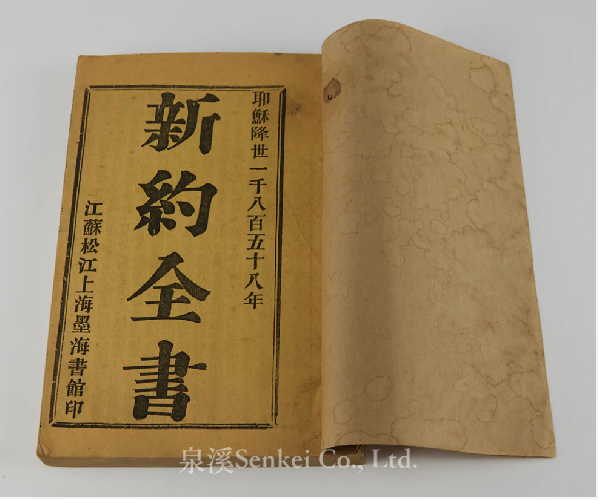 耶穌降世一千八百五十八年
新約全書
江蘇松江上海墨海書館印
泉溪Senkei Co., Ltd.